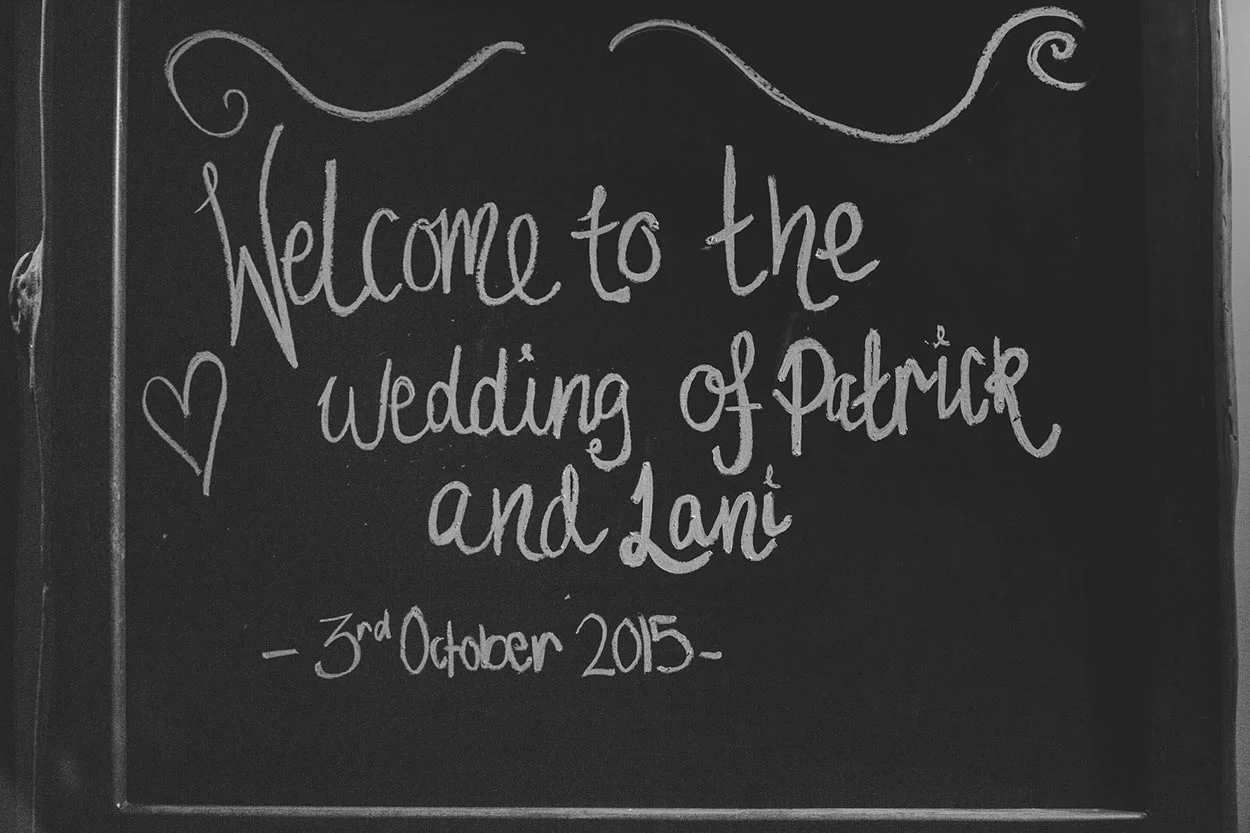 Welcome to the
wedding of Patrick
and Lani
- 3rd October 2015-